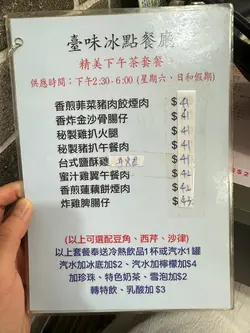 臺味冰點餐廳
精美下午茶套餐
供應時間：下午2:30-6:00 (星期六、日和假期)
香煎菲菜豬肉餃煙肉 $41
香炸金沙骨腸仔 $41
秘製雞扒火腿 $41
秘製豬扒午餐肉 $41
台式鹽酥雞 $41
蜜汁雞翼午餐肉 $42
香煎蓮藕餅煙肉 $42
炸雞脾腸仔 $43
(以上可選配豆角、西芹、沙律)
以上套餐奉送冷熱飲品1杯或汽水1罐
汽水加冰底加$2、汽水加檸檬加$4
加珍珠、特色奶茶、雪泡加$2
轉特飲、乳酸加 $3